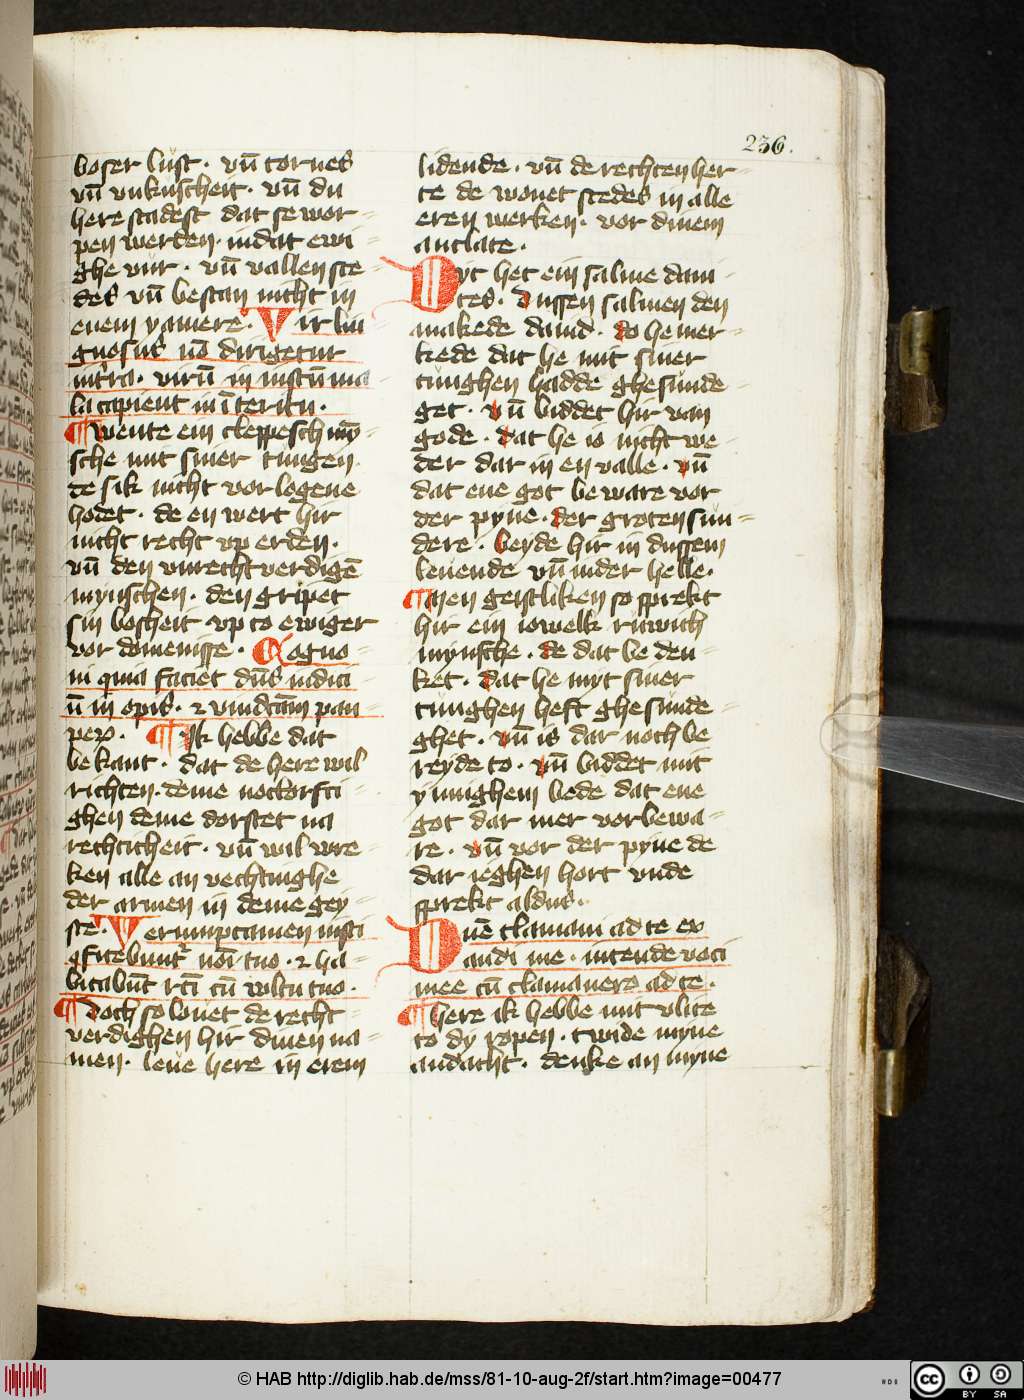 236.
boser lust · vn̄ tornes
vn̄ vnkuscheit · vn̄ du
here stadest dat se wor=
pen werden · in dat ewi=
ghe vur · vn̄ vallen ste=
des vn̄ bestan nicht in
enem yamere · Vir lin
guosus nō dirigetur
in tr̄ra · virū in iustū ma
la capient in īteritu ·
¶ Wente ein cleppesch mȳ=
sche mit siner tungen
de sik nicht vor logene
hodet · de en wert hir
nicht recht vp erden ·
vn̄ den vnrechtverdigē
mynschen · den gripet
sin bosheit vp to ewiger
vor domenisse · Cogno=
ui quia faciet dn̄s iudici
ū in opis · ⁊ vindcām pau=
peꝝ · ¶ Ik hebbe dat
bekant · dat de here wil
richten · deme nottorfti=
ghen deme dorstet na
rechticheit · vn̄ wil wre=
ken alle an vechtinghe
der armen in deme gey=
ste · Verumptamen iusti
gfitebunt᷑ noī tuo · ⁊ ha=
bitabūt rcī cū vltu tuo ·
¶ Doch so louet de recht=
verdighen hir dinen na=
men · leue here in erem
lidende · vn̄ de rechten her=
te de wonet stedes in alle
eren werken · vor dinem
antlate ·
Dyt het ein salme daui=
tes · Dussen salmen den
makede dauid · do he mer=
kede dat he mit siner
tunghen hadde ghesunde=
get · vn̄ biddet hir van
gode · dat he io nicht we=
der dar in en valle · vn̄
dat ene got beware vor
der pyne · der groten sun=
dere · beyde hir in dussem
leuende vn̄ in der helle ·
¶ Men geistliken so sprekt
hir ein iowelk ruwich
mynsche · de dat beden=
ket · dat he myt siner
tunghen heft ghesunde=
ghet · vn̄ is dar noch be
reyde to · vn̄ biddet mit
ynnighem bede dat ene
got dar mer vorbewa=
re · vn̄ vor der pyne de
dar ieghen hort vnde
sprekt aldus ·
Dn̄e clamaui ad te ex
audi me · intende voci
mee cū clamauero ad te ·
¶ here ik hebbe mit vlite
to dy ropen · twide myne
andacht · denke an myne
© HAB http://diglib.hab.de/mss/81-10-aug-2f/start.htm?image=00477
HAB
cc BY SA